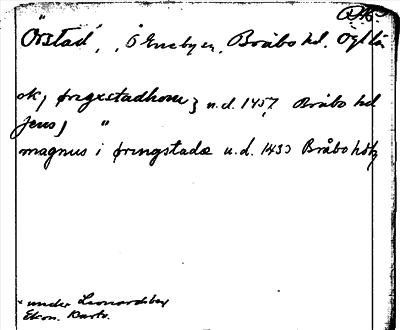 Örstad, Ö Eneby sn, Bråbo hd. Ögl län
ok, ørngxstadhom } u.d. 1457 Bråbo hd
Jens, "
magnus i ørngstadæ u.d. 1433 Bråbo hd
under Leonardsberg
Ekon. Kart.